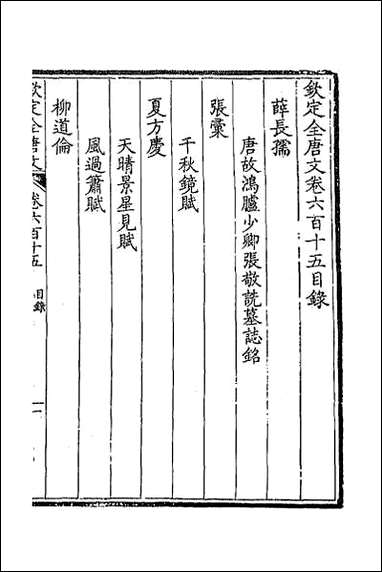 欽定全唐文卷六百十五目錄
薛長孺
唐故鴻臚少卿張敬詵墓誌銘
張彙
千秋鏡賦
夏方慶
天晴景星見賦
風過簫賦
柳道倫
欽定全唐文
卷六百十五
目錄
一